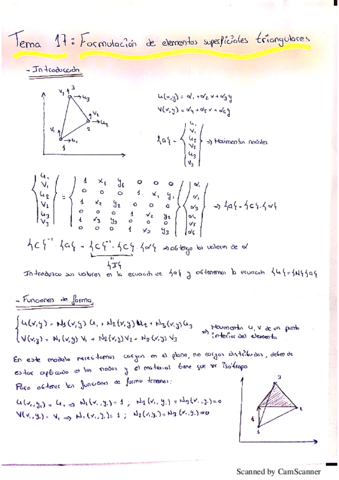 Tema 17: Formulación de elementos superficiales triangulares
- Introducción
u(x,y) = α1 + α2 x + α3 y
V(x,y) = α4 + α5 x + α6 y
{a} = {u1 V1 u2 V2 u3 V3} ⇒ Movimientos nodales
u1 1 x1 y1 0 0 0 α1
V1 0 0 0 1 x1 y1 α2
u2 1 x2 y2 0 0 0 α3
V2 0 0 0 1 x2 y2 α4
u3 1 x3 y3 0 0 0 α5
V3 0 0 0 1 x3 y3 α6
⇒ {a} = {C} · {α}
{C}⁻¹ {a} = {C}⁻¹ · {C} · {α} ⇒ obtengo los valores de α
{I}
Introducimos sus valores en la ecuación de {a} y obtenemos la ecuación {u} = {N}{a}
- Funciones de forma
u(x,y) = N1(x,y) u1 + N2(x,y) u2 + N3(x,y) u3
V(x,y) = N1(x,y) V1 + N2(x,y) V2 + N3(x,y) V3
⇒ Movimientos u, v de un punto
interior del elemento
En este modelo necesitamos cargas en el plano, no cargas distribuidas, deben de
estar aplicadas a los nodos y el material tiene que ser isótropo.
Para obtener las funciones de forma tenemos:
u(x1,y1) = u1 ⇒ N1(x1,y1) = 1 ; N2(x1,y1) = N3(x1,y1) = 0
V(x1,y1) = V1 ⇒ N1(x1,y1) = 1 ; N2(x1,y1) = N3(x1,y1) = 0
Scanned by CamScanner